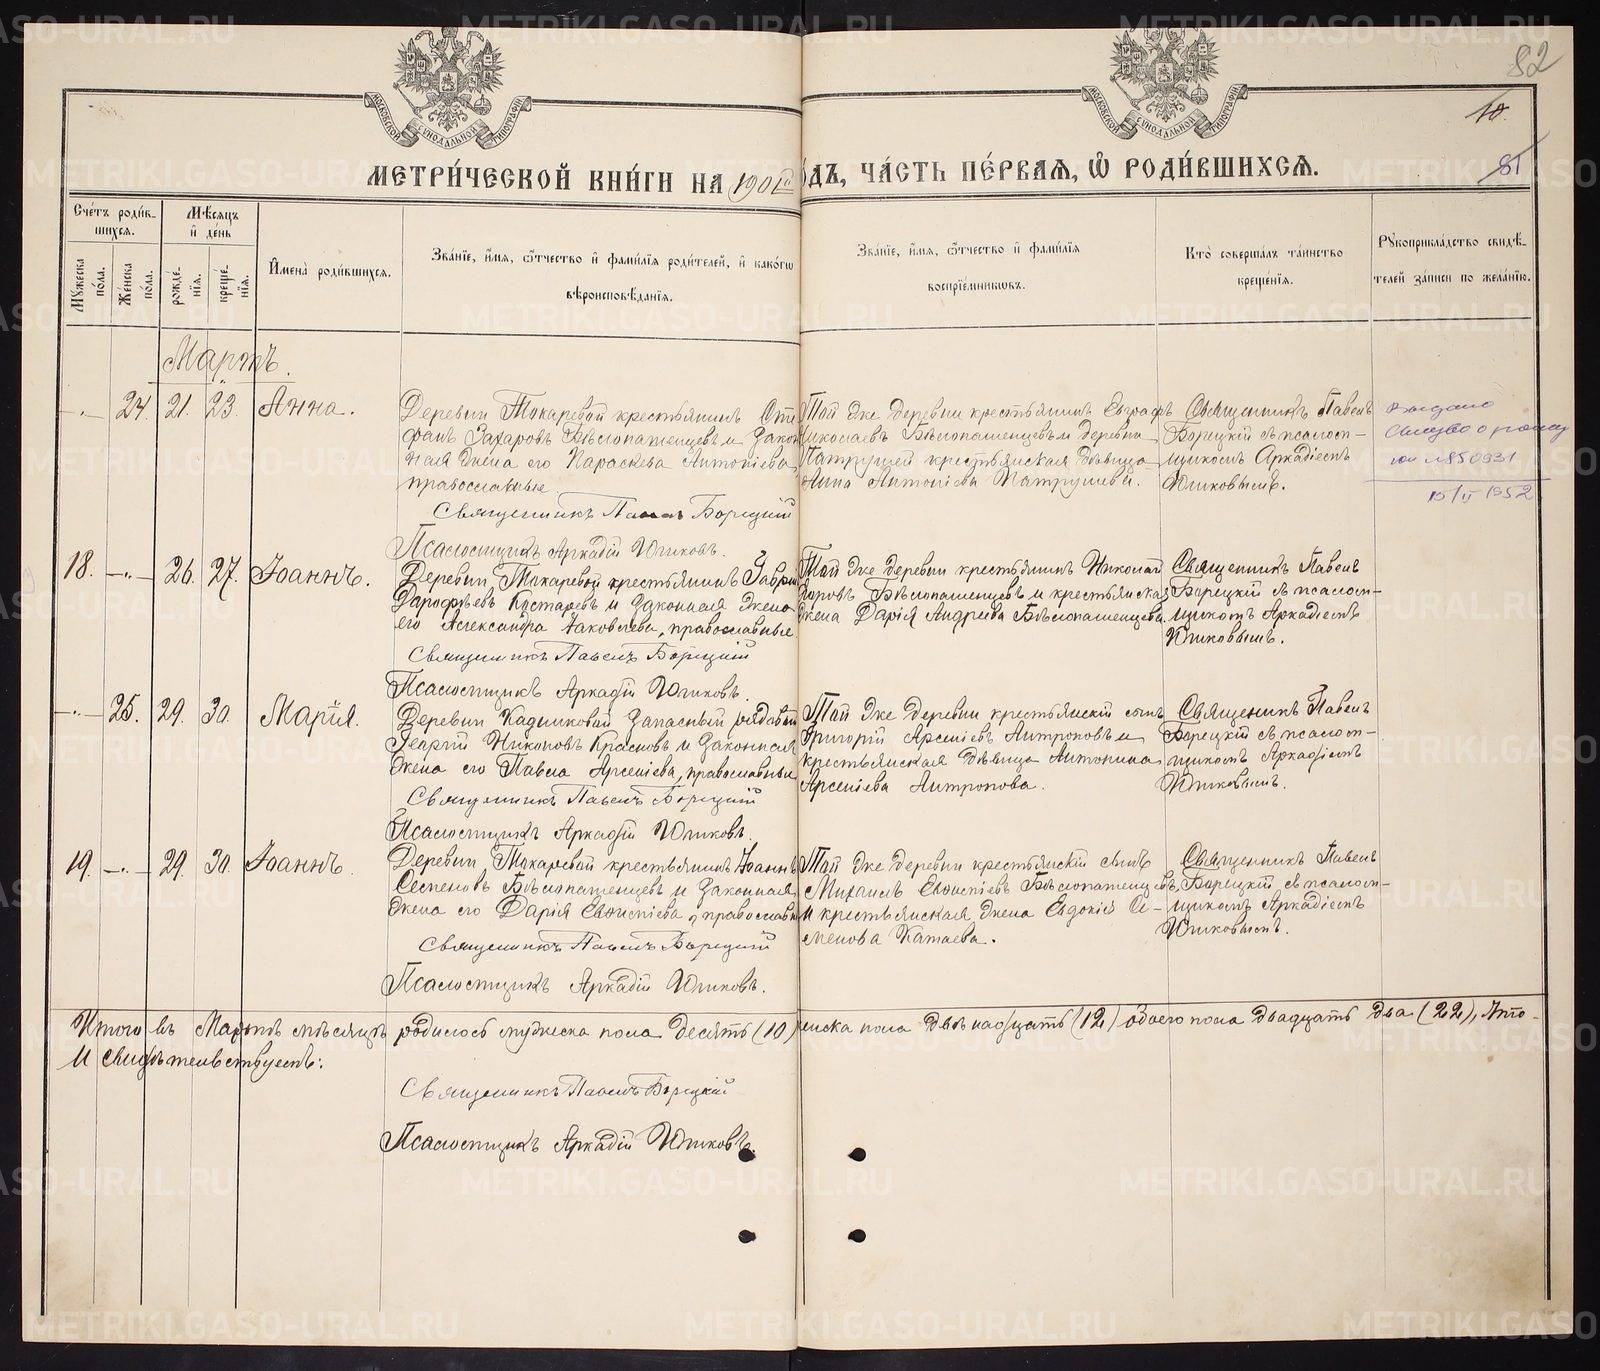 82
10.
81
МОСКОВСКОЙ СѴНОДАЛЬНОЙ ТИПОГРАФІИ
МОСКОВСКОЙ СѴНОДАЛЬНОЙ ТИПОГРАФІИ
МЕТРИ́ЧЕСКОЙ КНИ́ГИ НА 190
ДЪ, ЧА́СТЬ ПЕ́РВАѦ, Ѽ РОДИ́ВШИХСѦ.
Сче́тъ роди́в-
шихсѧ.
Мѣ́сѧцъ
и҆ де́нь
Мꙋ́жеска по́ла.
Же́нска по́ла.
рожде́-
нїѧ.
креще́-
нїѧ.
И҆мена̀ роди́вшихсѧ.
Зва́нїе, и҆́мѧ, ѻ҆́тчество и҆ фами́лїѧ роди́телей, и҆ како́гѡ
вѣроисповѣ́данїѧ.
Зва́нїе, и҆́мѧ, ѻ҆́тчество и҆ фами́лїѧ
воспрїе́мникѡвъ.
Кто̀ соверша́лъ та́инство
креще́нїѧ.
Рꙋкоприкла́дство свидѣ́-
телей за́писи по жела́нїю.
Мартъ.
-"- 24. 21. 23. Анна.
Деревни Токаревой крестьянинъ Сте
фанъ Захаровъ Бѣлопашенцевъ и закон
ная жена его Параскева Антоніева
православные.
Священникъ Павелъ Борецкій
Псаломщикъ Аркадій Юшковъ.
Той же деревни крестьянинъ Евграфъ
Николаевъ Бѣлопашенцевъ и деревни
крестьянская дѣвица
Анна Антоніева Патрушева.
Священникъ Павелъ
Борецкій съ псалом-
щикомъ Аркадіемъ
Юшковымъ.
Выдано
850931
1952
18. -"- 26. 27. Іоаннъ.
Деревни Токаревой крестьянинъ Гаврі
Дорофѣевъ Костаревъ и законная жена
его Александра Іаковлева, православные
Священникъ Павелъ Борецкій
Псаломщикъ Аркадій Юшковъ.
Той же деревни крестьянинъ Николай
Бѣлопашенцевъ и крестьянская
жена Дарія Андреева Бѣлопашенцева.
Священникъ Павелъ
Борецкій съ псалом-
щикомъ Аркадіемъ
Юшковымъ.
-"- 25. 29. 30. Марія.
Деревни Кадниковой запасный рядовой
Георгій Никоновъ Красновъ и законная
жена его Павла Арсеніева, православные
Священникъ Павелъ Борецкій
Псаломщикъ Аркадій Юшковъ.
Той же деревни крестьянскій сынъ
Григорій Арсеніевъ Антроповъ и
крестьянская дѣвица Антонина
Арсеніева Антропова.
Священникъ Павелъ
Борецкій съ псалом-
щикомъ Аркадіемъ
Юшковымъ.
19. -"- 29. 30. Іоаннъ.
Деревни Токаревой крестьянинъ Іоаннъ
Семеновъ Бѣлопашенцевъ и законная
жена его Дарія Евсигніева, православн
Священникъ Павелъ Борецкій
Псаломщикъ Аркадій Юшковъ.
Той же деревни крестьянскій сынъ
Михаилъ Евсигніевъ Бѣлопашенцевъ,
и крестьянская жена Евдокія Си-
менова Катаева.
Священникъ Павелъ
Борецкій съ псалом-
щикомъ Аркадіемъ
Юшковымъ.
Итого въ Мартѣ мѣсяцѣ родилось мужеска пола десять (10) женска пола двѣнадцать (12) обоего пола двадцать два (22), что
и свидѣтельствуемъ:
Священникъ Павелъ Борецкій
Псаломщикъ Аркадій Юшковъ.
METRIKI.GASO-URAL.RU